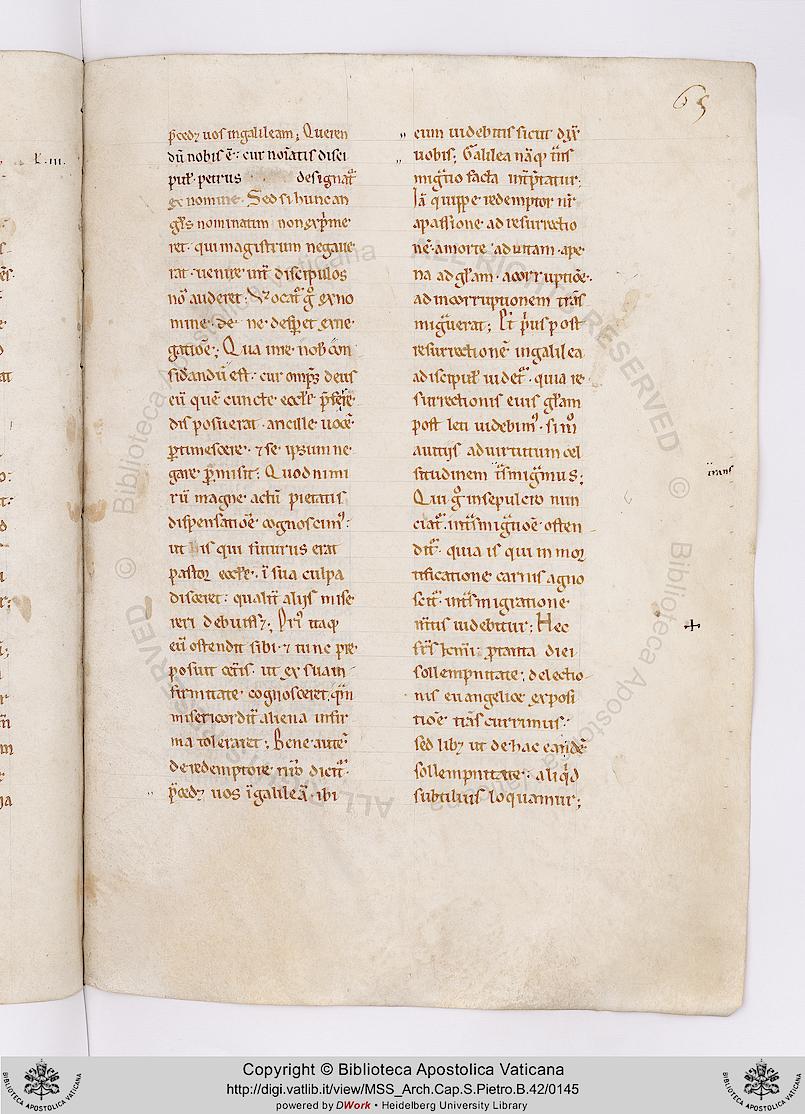 65
p̄cedꝫ uos in galileam; Queren
dū nobis ē· cur noīatis disci
pul̄· petrus designat᷑
ex nomine· Sed si hunc an
gl̄s nominatim non exp̄me
ret· qui magistrum negaue
rat· uenire int̄ discipulos
nō auderet; Vocat᷑ gͦ ex no
mine· de ne despet ex ne
gatiōe; Qua in re nob̄ con
siderandū est· cur omp̄s deus
eū quē cuncte eccl̄e p̄ferre
disposuerat· ancille uocē
ꝑtimescere· ⁊ se ipsum ne
gare ꝑmisit; Quod nimi
rū magne actū pietatis
dispensatiōe cognoscim᷒·
ut is qui futurus erat
pastor eccl̄e· ī sua culpa
disceret· qualit̄ aliis mise
reri debuissꝫ; Pri᷒ itaqꝫ
eū ostendit sibi· ⁊ tunc pre
posuit cēt̄is· ut ex sua in
firmitate cognosceret· q̄m
misericordit̄ aliena infir
ma toleraret; Bene autē
de redemptore nr̄o dicit᷑·
p̄cedꝫ uos ī galileā· ibi
eum uidebitis sicut dix̄
uobis; Galilea nāqꝫ t̄ns
migͣtio facta int̄p̄tatur·
Iā quippe redemptor nr̄
a passione ad resurrectio
nē· a morte ad uitam· a pe
na ad gl̄am· a corruptiōe·
ad incorruptionem trās
migͣuerat; Et p̄us post
resurrectionē in galilea
a discipul̄ uidet᷑· quia re
surrectionis eius gl̄am
post leti uidebim᷒· si m̊
a uitiis ad uirtutum cel
situdinem t̄smigͣmus;
Qui gͦ in sepulcro nun
ciat᷑· in t̄smigͣtiōe osten
dit᷑· quia is qui in mor
tificatione carnis agno
scit᷑· in t̄smigratione
m̄tis uidebitur; Hec
fr̄s k̄mi· ꝑ tanta diei
sollempnitate· de lectio
nis euangelice exposi
tiōe trās currimus;
sed libꝫ ut de hac eandē
sollempnitate· aliq̊d
subtilius loquamur;
L· iii·
trans
Copyright © Biblioteca Apostolica Vaticana
http://digi.vatlib.it/view/MSS_Arch.Cap.S.Pietro.B.42/0145
powered by DWork • Heidelberg University Library